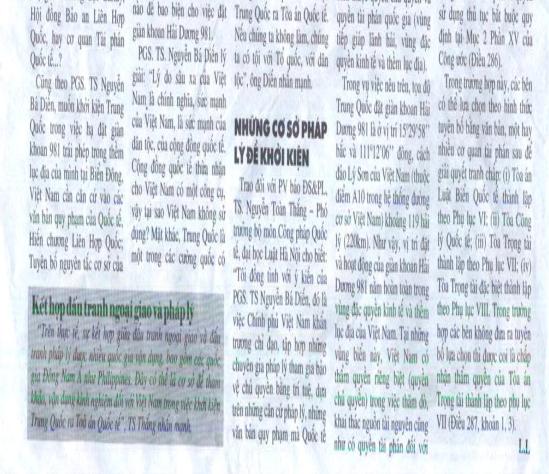 Hội đồng Bảo an Liên Hợp
Quốc, hay cơ quan Tài phán
Quốc tế...?
Cũng theo PGS. TS Nguyễn
Bá Diến, muốn khởi kiện Trung
Quốc trong việc hạ đặt giàn
khoan 981 trái phép trong thềm
lục địa của mình tại Biển Đông,
Việt Nam cần căn cứ vào các
văn bản quy phạm của Quốc tế,
Hiến chương Liên Hợp Quốc;
Tuyên bố nguyên tắc cơ sở của
nào để bao biện cho việc đặt
giàn khoan Hải Dương 981.
PGS. TS. Nguyễn Bá Diến lý
giải: "Lý do sâu xa của Việt
Nam là chính nghĩa, sức mạnh
của Việt Nam, là sức mạnh của
dân tộc, của cộng đồng quốc tế.
Cộng đồng quốc tế thừa nhận
cho Việt Nam có một công cụ,
vậy tại sao Việt Nam không sử
dụng? Mặt khác, Trung Quốc là
một trong các cường quốc có
Kết hợp đấu tranh ngoại giao và pháp lý
"Trên thực tế, sự kết hợp giữa đấu tranh ngoại giao và đấu
tranh pháp lý được nhiều quốc gia vận dụng, bao gồm các quốc
gia Đông Nam Á như Philippines. Đây có thể là cơ sở để tham
khảo, vận dụng kinh nghiệm đối với Việt Nam trong việc khởi kiện
Trung Quốc ra Toà án Quốc tế", TS Thắng nhấn mạnh.
Trung Quốc ra Tòa án Quốc tế.
Nếu chúng ta không làm, chúng
ta có tội với Tổ quốc, với dân
tộc", ông Diến nhấn mạnh.
NHỮNG CƠ SỞ PHÁP
LÝ ĐỂ KHỞI KIỆN
Trao đổi với PV báo ĐS&PL,
TS. Nguyễn Toàn Thắng – Phó
trưởng bộ môn Công pháp Quốc
tế, đại học Luật Hà Nội cho biết:
"Tôi đồng tình với ý kiến của
PGS. TS Nguyễn Bá Diến, đó là
việc Chính phủ Việt Nam khẩn
trương chỉ đạo, tập hợp những
chuyên gia pháp lý tham gia bảo
vệ chủ quyền bằng trí tuệ, dựa
trên những căn cứ pháp lý, những
văn bản quy phạm mà Quốc tế
quyền tài phán quốc gia (vùng
tiếp giáp lãnh hải, vùng đặc
quyền kinh tế và thềm lục địa).
Trong vụ việc nêu trên, tọa độ
Trung Quốc đặt giàn khoan Hải
Dương 981 là ở vị trí 15°29'58"
bắc và 111°12'06" đông, cách
đảo Lý Sơn của Việt Nam (thuộc
điểm A10 trong hệ thống đường
cơ sở Việt Nam) khoảng 119 hải
lý (220km). Như vậy, vị trí đặt
và hoạt động của giàn khoan Hải
Dương 981 nằm hoàn toàn trong
vùng đặc quyền kinh tế và thềm
lục địa của Việt Nam. Tại những
vùng biển này, Việt Nam có
thẩm quyền riêng biệt (quyền
chủ quyền) trong việc thăm dò,
khai thác nguồn tài nguyên cũng
như có quyền tài phán đối với
sử dụng thủ tục bắt buộc quy
định tại Mục 2 Phần XV của
Công ước (Điều 286).
Trong trường hợp này, các bên
có thể lựa chọn theo hình thức
tuyên bố bằng văn bản, một hay
nhiều cơ quan tài phán sau để
giải quyết tranh chấp: (i) Tòa án
Luật Biển Quốc tế thành lập
theo Phụ lục VI; (ii) Tòa Công
lý Quốc tế; (iii) Tòa Trọng tài
thành lập theo Phụ lục VII; (iv)
Tòa Trọng tài đặc biệt thành lập
theo Phụ lục VIII. Trong trường
hợp các bên không đưa ra tuyên
bố lựa chọn thì được coi là chấp
nhận thẩm quyền của Tòa án
Trọng tài thành lập theo phụ lục
VII (Điều 287, khoản 1, 3).
L.L